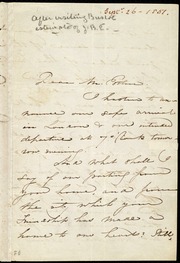 Sept. 26 - 1851.
After visiting Bristol
J. B. E.
Dear Mr. Estlin
I hasten to an-
nounce our safe arrival
in London & our intended
departure at 7 o'clock tomor-
row evening.
And what shall I
say of our parting from
your home, and from
the city which your
friendship has made a
home to our hearts? Still,